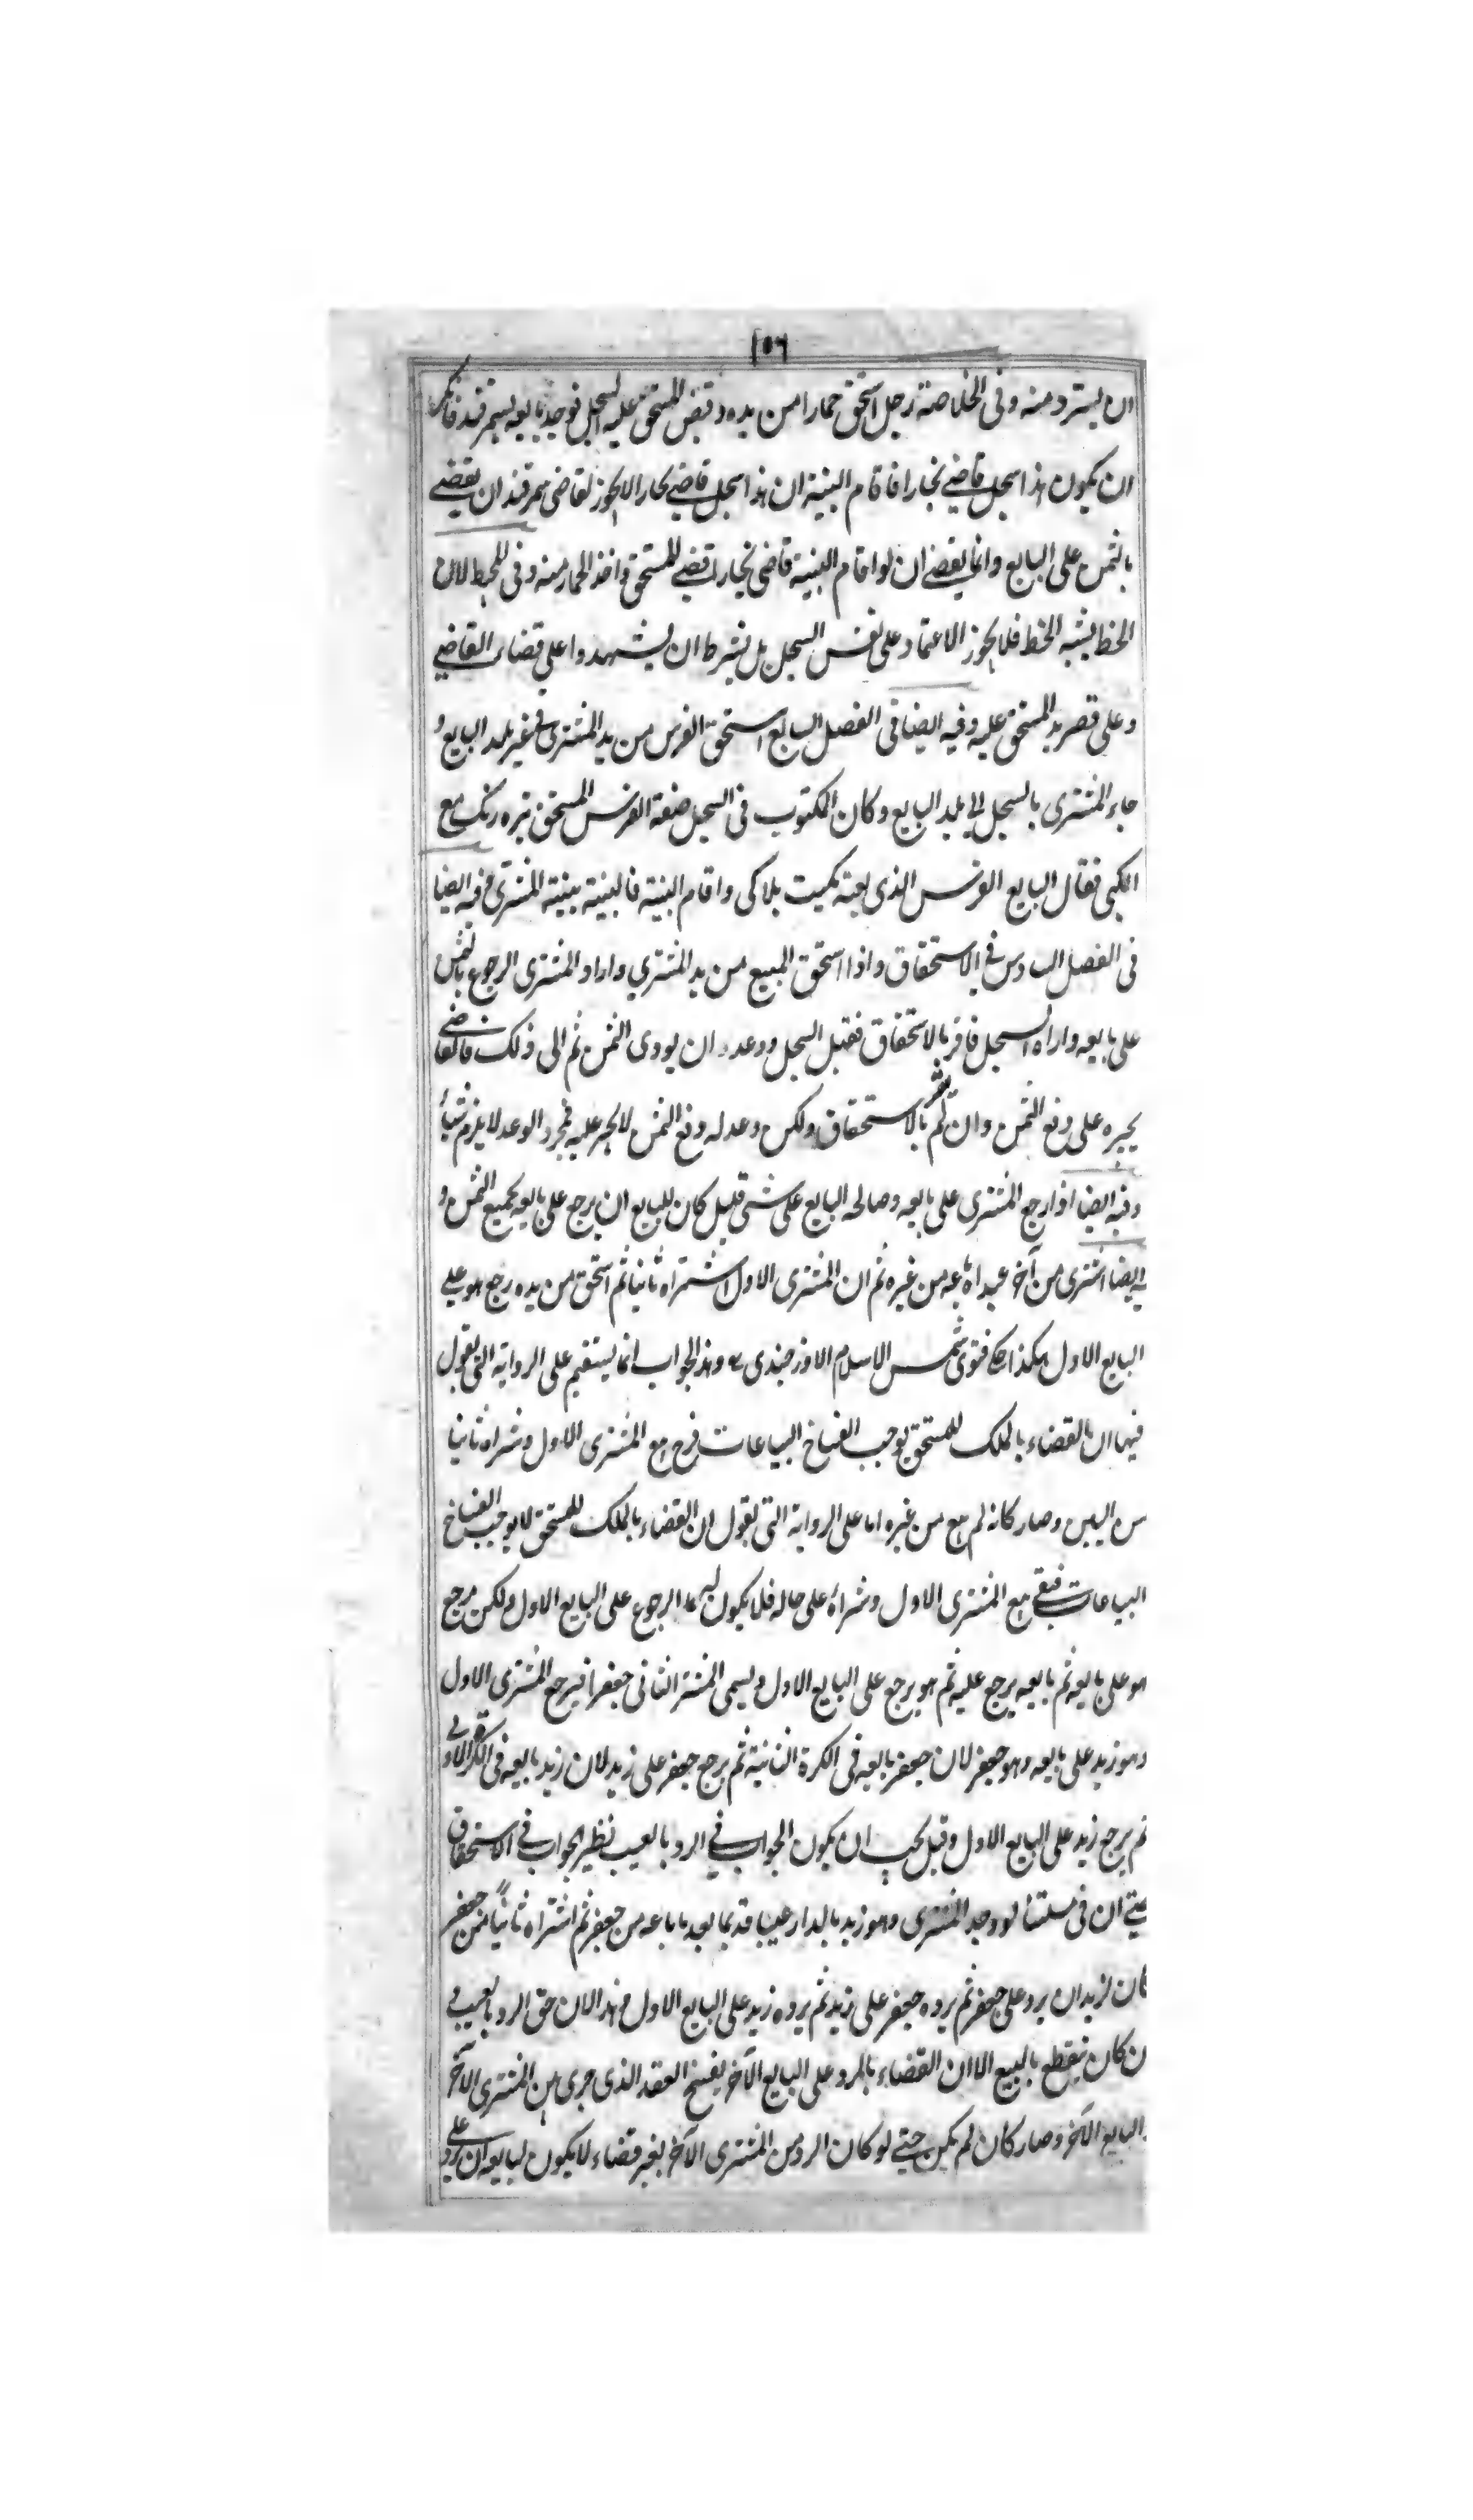 ١٥٦
ان يسترد منه وفى الخلاصة رجل استحق حمارا من يده وقبض المستحق عليه السجل فوجد بايعه بسمرقند فانكر
ان يكون هذا سجل قاضى بخارا فاقام البينة ان هذا سجل قاضى بخارا لا يجوز لقاضى سمرقند ان يقضى
بالثمن على البايع وانما يقضى ان لو اقام البينة قاضى بخارا قضى للمستحق واخذ الحمار منه وفى المحيط لان
الخط يشبه الخط فلا يجوز الاعتماد على نفس السجل بل يشترط ان يشهدوا على قضاء القاضى
وعلى قصر يد المستحق عليه وفيه ايضا فى الفصل السابع استحق الفرس من يد المشترى فى غير بلد البايع و
جاء المشترى بالسجل الى بلد البايع وكان المكتوب فى السجل صفة الفرس المستحق تيره رنك مع
الكى فقال البايع الفرس الذى بعته كميت بلا كى واقام البينة فالبينة بينة المشترى وفيه ايضا
فى الفصل السادس فى الاستحقاق واذا استحق المبيع من يد المشترى واراد المشترى الرجوع بالثمن
على بايعه واراه السجل فاقر بالاستحقاق فقبل السجل ووعده ان يودى الثمن ثم الى ذلك فالقاضى
يجبره على دفع الثمن وان لم يقر بالاستحقاق ولكن وعد له دفع الثمن لا يجبر عليه فمجرد الوعد لا يلزم شيأ
وفيه ايضا اذا رجع المشترى على بايعه وصالحه البايع على شى قليل كان للبايع ان يرجع على بايعه بجميع الثمن و
ايضا اشترى من آخر عبدا وباعه من غيره ثم ان المشترى الاول اشتراه ثانيا ثم استحق من يده رجع هو على
البايع الاول هكذا حكى فتوى شمس الاسلام الاوزجندى وهذا الجواب انما يستقيم على الرواية التى يقول
فيها ان بالقضاء بالملك للمستحق يوجب انفساخ البياعات فرح مع المشترى الاول وشراه ثانيا
من البين وصار كانه لم يبع من غيره اما على الرواية التى يقول ان القضاء بالملك للمستحق لا يوجب انفساخ
البياعات فبقى بيع المشترى الاول وشراءه على حاله فلا يكون لهما الرجوع على البايع الاول ولكن يرجع
هو على بايعه ثم بايعه يرجع عليه ثم هو يرجع على البايع الاول ويسمى المشتر الثانى جعفرا فيرجع المشترى الاول
وهو زيد على بايعه وهو جعفر لان جعفر بايعه فى الكرة الثانية ثم يرجع جعفر على زيد لان زيد بايعه فى الكرة الاولى
ثم يرجع زيد على البايع الاول وقيل يجب ان يكون الجواب فى الرد بالعيب نظير الجواب فى الاستحقاق
حتى ان فى مسئلتنا لو وجد المشترى وهو زيد بالدار عيبا قديما بعد ما باعه من جعفر ثم اشتراه ثانيا من جعفر
كان لزيد ان يرد على جعفر ثم يرده جعفر على زيد ثم يرده زيد على البايع الاول وهذا لان حق الرد بالعيب و
ان كان ينقطع بالبيع الا ان القضاء بالرد على البايع الآخر يفسخ العقد الذى جرى بين المشترى الآخر
والبايع الآخر وصار كان لم يكن حتى لو كان الرد من المشترى الآخر بغير قضاء لا يكون لبايعه ان يرد على